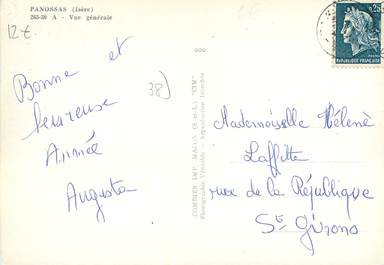 PANOSSAS (Isère)
265-38 A - Vue générale
12€
Bonne et
heureuse
Année
Augusta
38)
COMBIER IMP. MACON (S.-et-L.) "CIM"
Photographie Véritable - Reproduction Interdite
0,25
REPUBLIQUE FRANÇAISE
Mademoiselle Hélène
Laffitte
rue de la République
St Girons